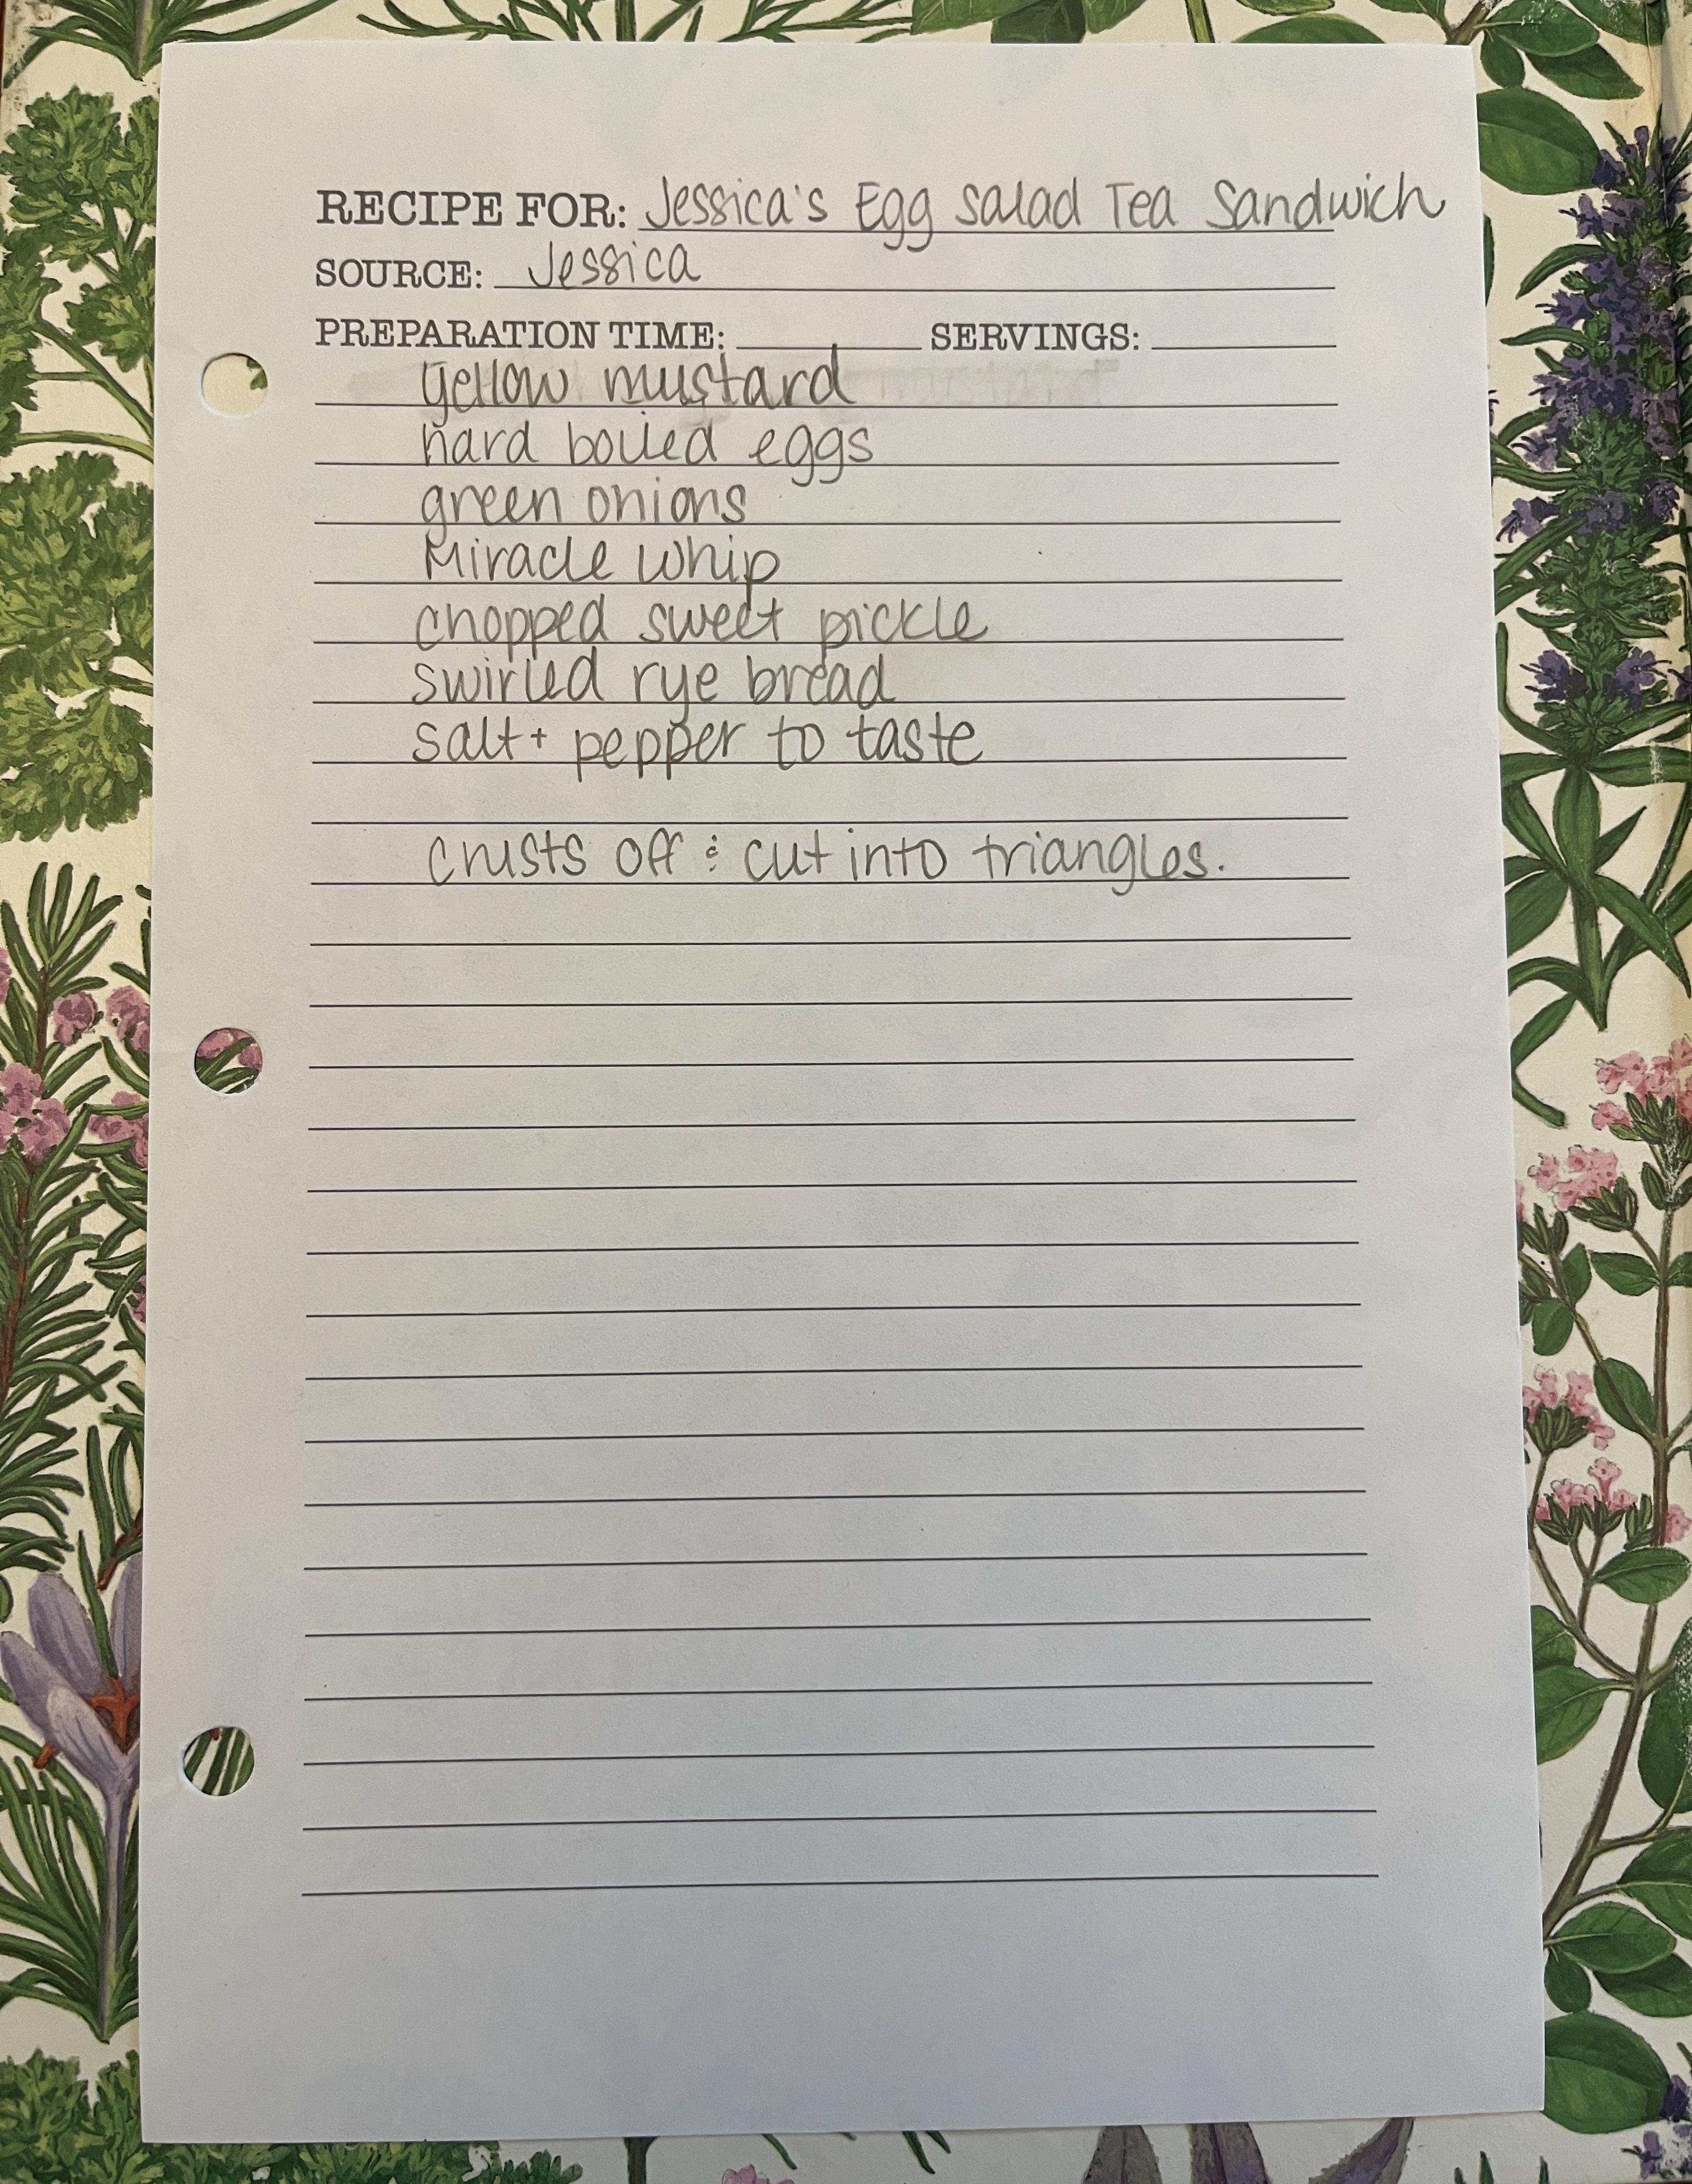 RECIPE FOR: Jessica's Egg Salad Tea Sandwich
SOURCE: Jessica
PREPARATION TIME: SERVINGS:
yellow mustard
hard boiled eggs
green onions
Miracle Whip
chopped sweet pickle
swirled rye bread
salt + pepper to taste
crusts off & cut into triangles.